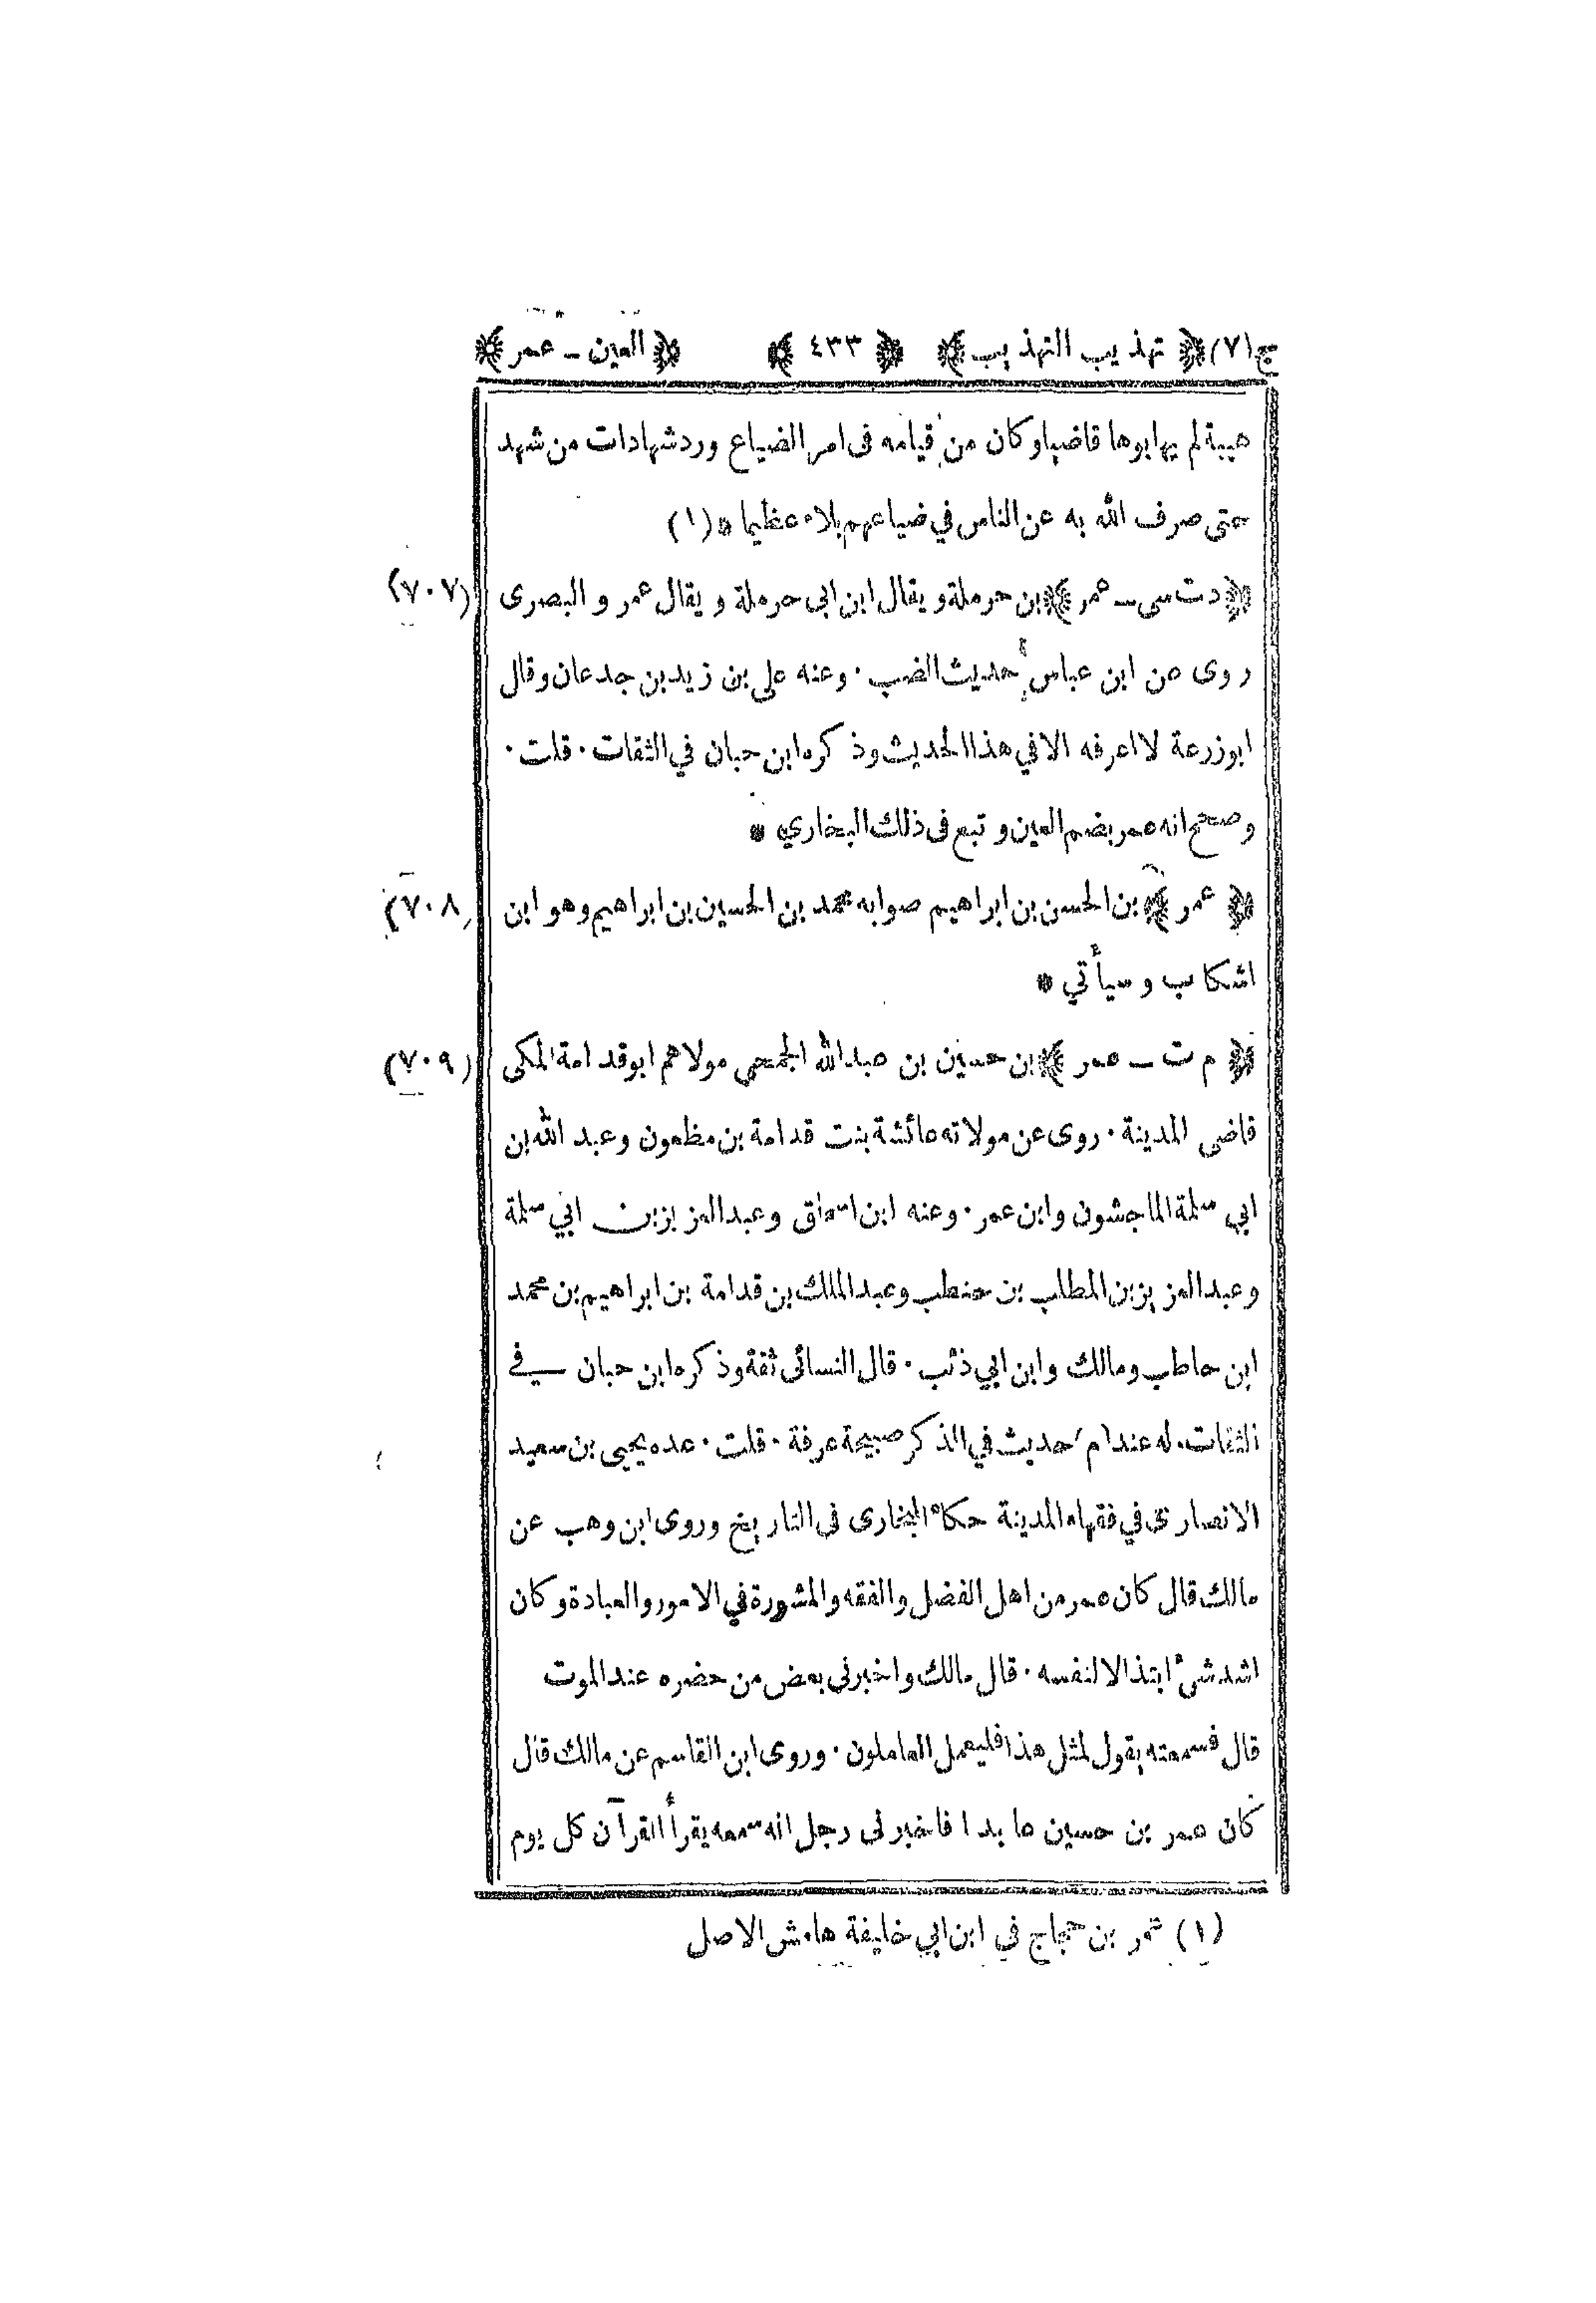 ج(٧) ﴿ تهذيب التهذيب ﴾ ﴿ ٤٣٣ ﴾ ﴿ العين ـ عمر ﴾
هيبة لم يهابوها قاضيا وكان من قيامه فى امر الضياع ورد شهادات من شهد
حتى صرف الله به عن الناس في ضياعهم بلاء عظيما * (١)
(٧٠٧) ﴿ د ت سى ـ عمر ﴾ بن حرملة ويقال ابن ابى حرملة ويقال عمرو البصرى
روى عن ابن عباس حديث الضب. وعنه على بن زيد بن جدعان وقال
ابوزرعة لا اعرفه الا في هذا الحديث وذكره ابن حبان في الثقات. قلت.
وصحح انه عمر بضم العين وتبع فى ذلك البخاري *
(٧٠٨) ﴿ عمر ﴾ بن الحسن بن ابراهيم صوابه محمد بن الحسين بن ابراهيم وهو ابن
اشكاب وسيأتي *
(٧٠٩) ﴿ م ت ـ عمر ﴾ بن حسين بن عبدالله الجمحي مولاهم ابوقدامة المكى
قاضى المدينة. روى عن مولاته عائشة بنت قدامة بن مظعون وعبد الله بن
ابي سلمة الماجشون وابن عمر. وعنه ابن اسحاق وعبدالعزيز بن ابي سلمة
وعبدالعزيز بن المطلب بن حنطب وعبدالملك بن قدامة بن ابراهيم بن محمد
ابن حاطب ومالك وابن ابي ذئب. قال النسائى ثقة وذكره ابن حبان في
الثقات. له عندام حديث في الذكر صبيحة عرفة. قلت. عده يحيى بن سعيد
الانصارى في فقهاء المدينة حكاه البخارى فى التاريخ وروى ابن وهب عن
مالك قال كان عمر من اهل الفضل والفقه والمشورة في الامور والعبادة وكان
اشد شئ ابتذالا لنفسه. قال مالك واخبرنى بعض من حضره عند الموت
قال فسمعته يقول لمثل هذا فليعمل العاملون. وروى ابن القاسم عن مالك قال
كان عمر بن حسين عابدا فاخبرنى رجل انه سمعه يقرأ القرآن كل يوم
(١) عمر بن حجاج في ابن ابي خليفة هامش الاصل